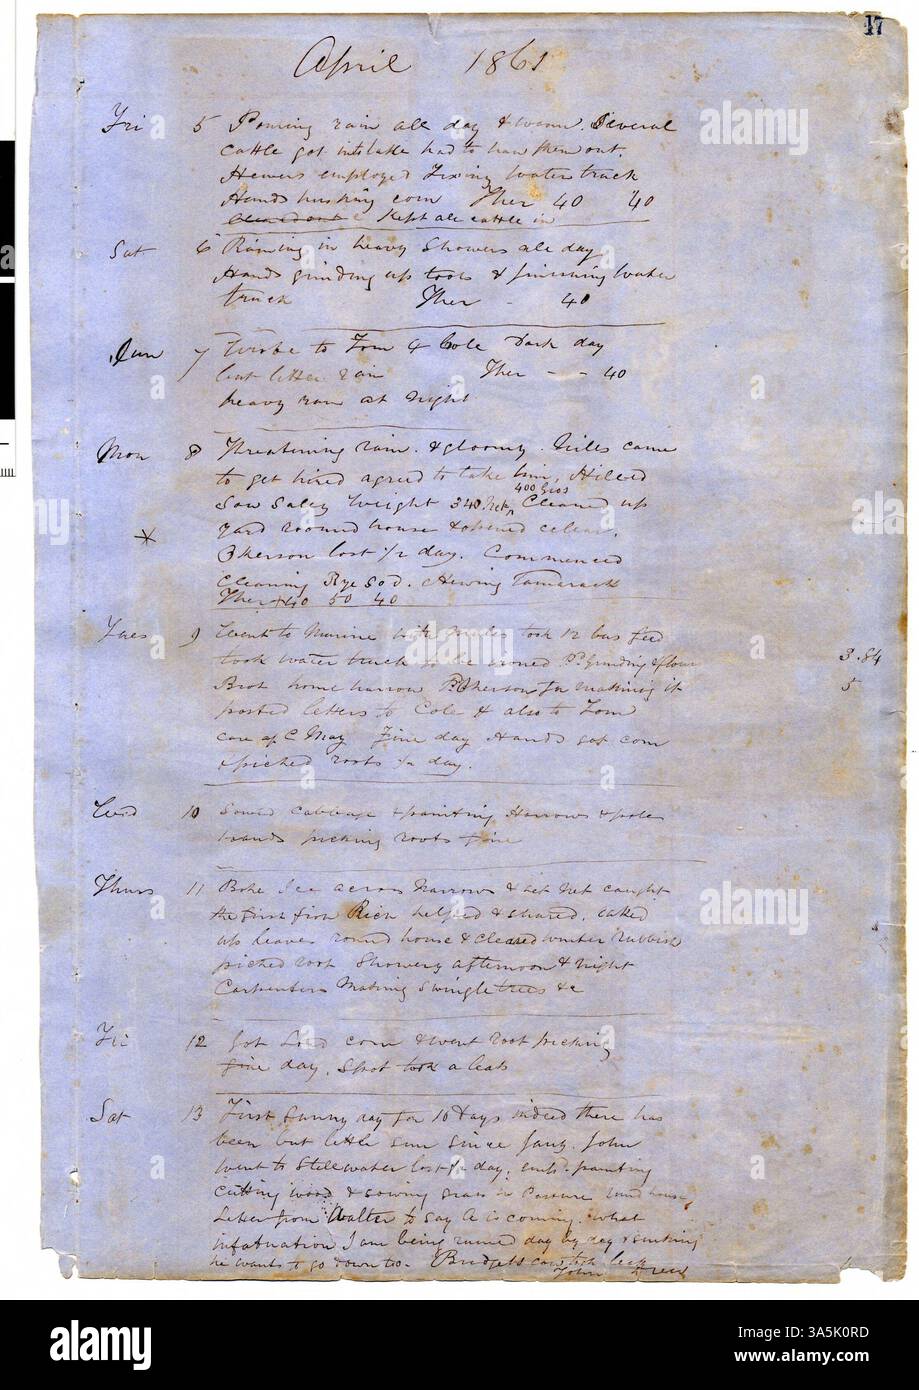 17
April 1861
Fri 5 Pouring rain all day & warm. Several
cattle got into lake had to haw them out.
Hewers employed Fixing Water truck
Hands husking corn Ther 40 40
Kept all cattle in
Sat 6 Raining in heavy Showers all day
Hands grinding up tools & finishing Water
truck Ther - 40
Sun 7 Wrote to Tom & Cole Dark day
but little rain Ther - - 40
heavy rain at night
Mon 8 Threatining rain & gloomy. Miles came
to get hired agreed to take him. Killed
400 Gros
Sow Saley Weight 340 Net, Cleaned up
yard round house & opened cellar.
* lost 1/2 day. Commenced
Cleaning Rye So d. Hewing Tamerack
Ther 40 50 40
Tues 9 Went to Marine with Mules took 12 bus feed
took water truck to be ironed Pd Grinding & flour 3.84
Brot home harrow Pd for making it 5
posted letters to Cole & also to Tom
care of C May Fine day Hands got corn
& picked roots 1/2 day.
Wed 10 Sowed Cabbage & painting Harrows & poles
hands picking roots fine
Thurs 11 Boke Ice across Narrows & set Net caught
the first fish Rich helped & shared. raked
up leaves round house & cleared winter rubbish
picked root Showery afternoon & night
Carpenters Making Swingle trees &c
Fri 12 Got Load corn & went root picking
fine day. Spot took a leak
Sat 13 First Sunny day for 10 days indeed there has
been but little sun since Jany. John
went to Stillwater lost 1/2 day. painting
Cutting wood & sowing grass in Pasture
Letter from Walter to say A is coming. what
infatuation I am being ruined day by day &
he wants to go down too. Budgets cow took leak
John Drew
alamy
Image ID: 3A5K0RD
www.alamy.com